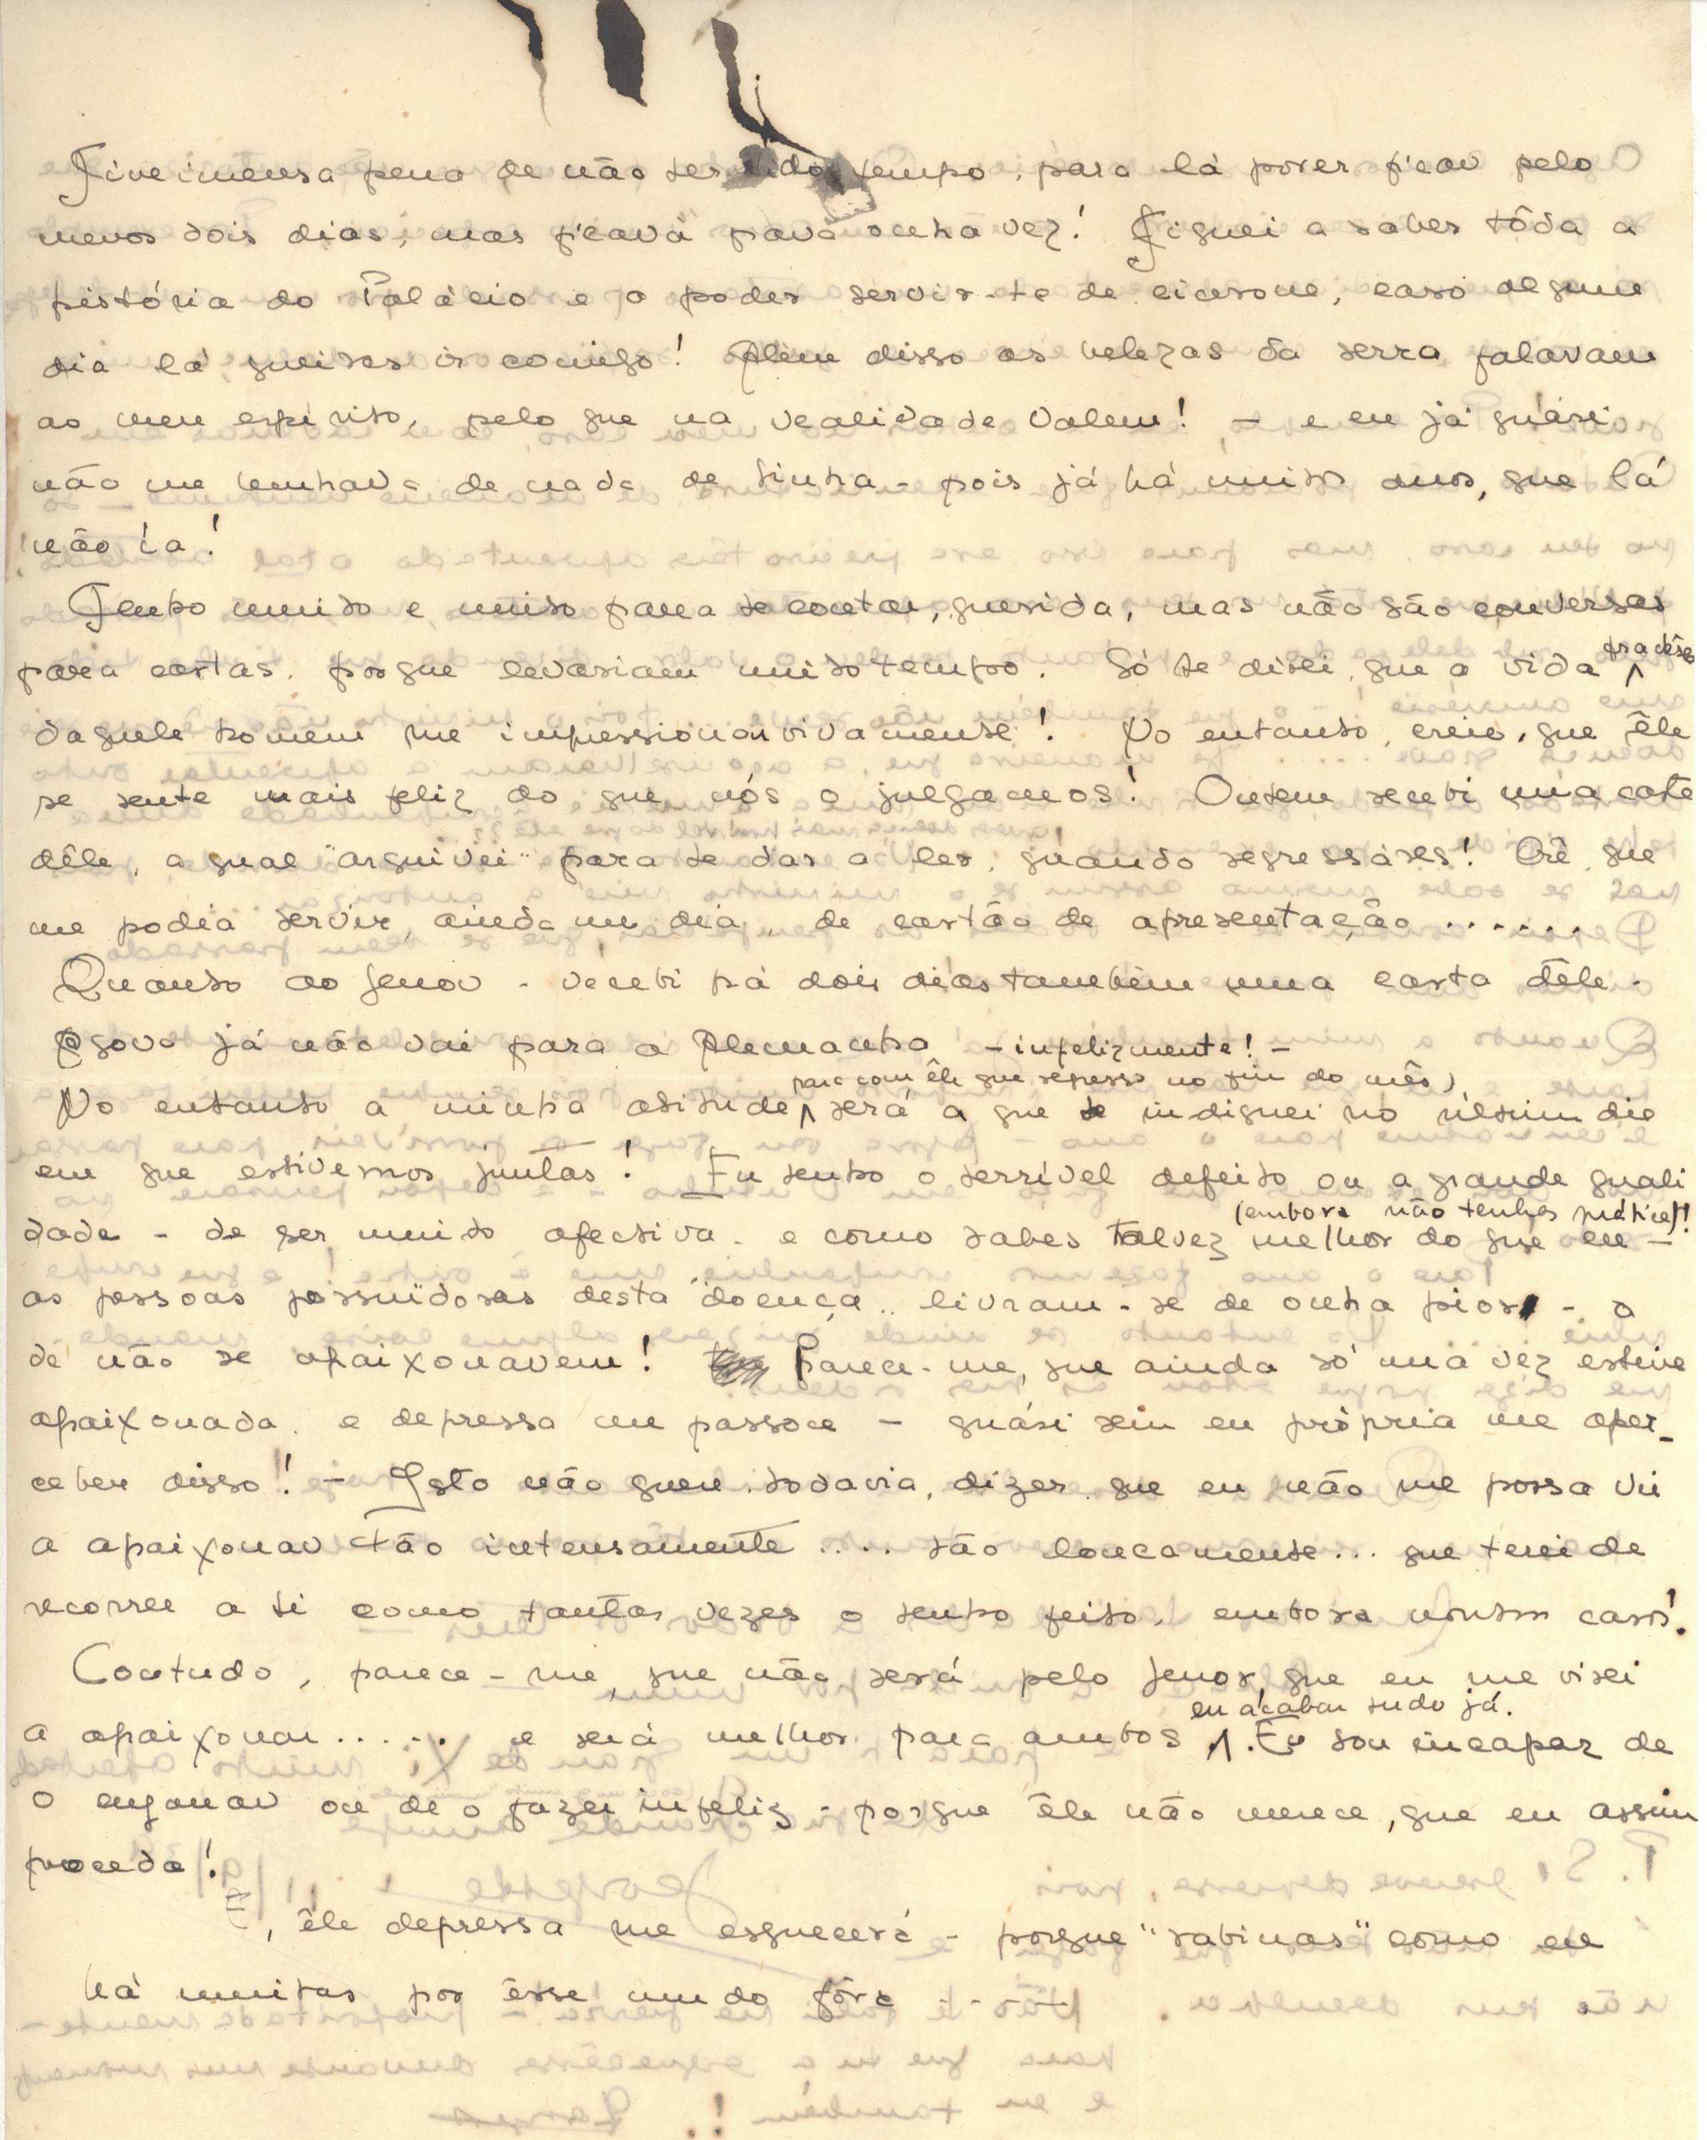 Tive imensa pena de não ter tido tempo, para lá poder ficar pelo
menos dois dias, mas ficará para outra vez! Fiquei a saber tôda a
história do Palácio e a poder servir-te de cicerone, caso algum
dia lá queiras ir comigo! Além disso as belezas da serra falavam
ao meu espírito, pelo que na realidade valem! - e eu já quási
não me lembrava de nada de Sintra - pois já há muitos anos, que lá
não ia!
Tenho muito e muito para te contar, querida, mas não são conversas
para cartas. porque levariam muito tempo. Só te direi, que a vida
daquele homem me impressionou vivamente! No entanto, creio, que êle
se sente mais feliz do que nós o julgamos! Ontem recebi uma carta
dêle, a qual "arquivei" para te dar a ler, quando regressares! Crê, que
me podia servir, ainda um dia, de cartão de apresentação.......
Quanto ao Jenov - recebi há dois dias também uma carta dêle.
Agora já não vai para a Alemanha - infelizmente! -
para com êle que regressa no fim do mês)
No entanto a minha atitude ^ será a que te indiquei no último dia
em que estivemos juntas! Eu tenho o terrível defeito ou a grande quali
(embora não tenhas prática)!
dade - de ser muito afectiva - e como sabes talvez melhor do que eu -
as pessoas possuïdoras desta "doença" livram-se de outra pior - a
de não se apaixonarem! Parece-me, que ainda só uma vez estive
apaixonada. e depressa me passou - quási sem eu própria me aper-
ceber disso! - Isto não quer, todavia, dizer que eu não me possa vir
a apaixonar tão intensamente .... tão loucamente... que terei de
recorrer a ti como tantas vezes o tenho feito, embora noutros casos!
Contudo, parece-me, que não será pelo Jenov, que eu me virei
eu acabar tudo já.
a apaixonar...... e será melhor para ambos ^. Eu sou incapaz de
o enganar ou de o fazer infeliz - porque êle não merece, que eu assim
proceda!
, êle depressa me esquecerá - porque "sabinas" como eu
há muitas por êsse mundo fóra - . - . -